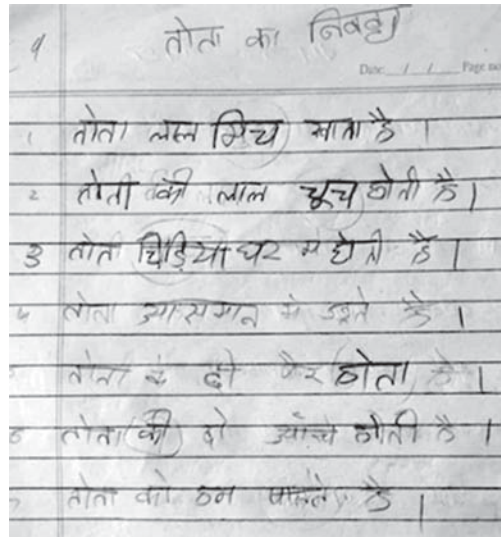 9 तोता का निबंध
Date / / Page no
1 तोता लाल मिच खाता है ।
2 तोती की लाल चूच होती है ।
3 तोता चिड़िया घर मे होती है ।
4 तोता आसमान मे उड़ते है ।
तोता के दो पैर होता है ।
6 तोता की दो आँखे होती है ।
तोता को हम पालते है ।